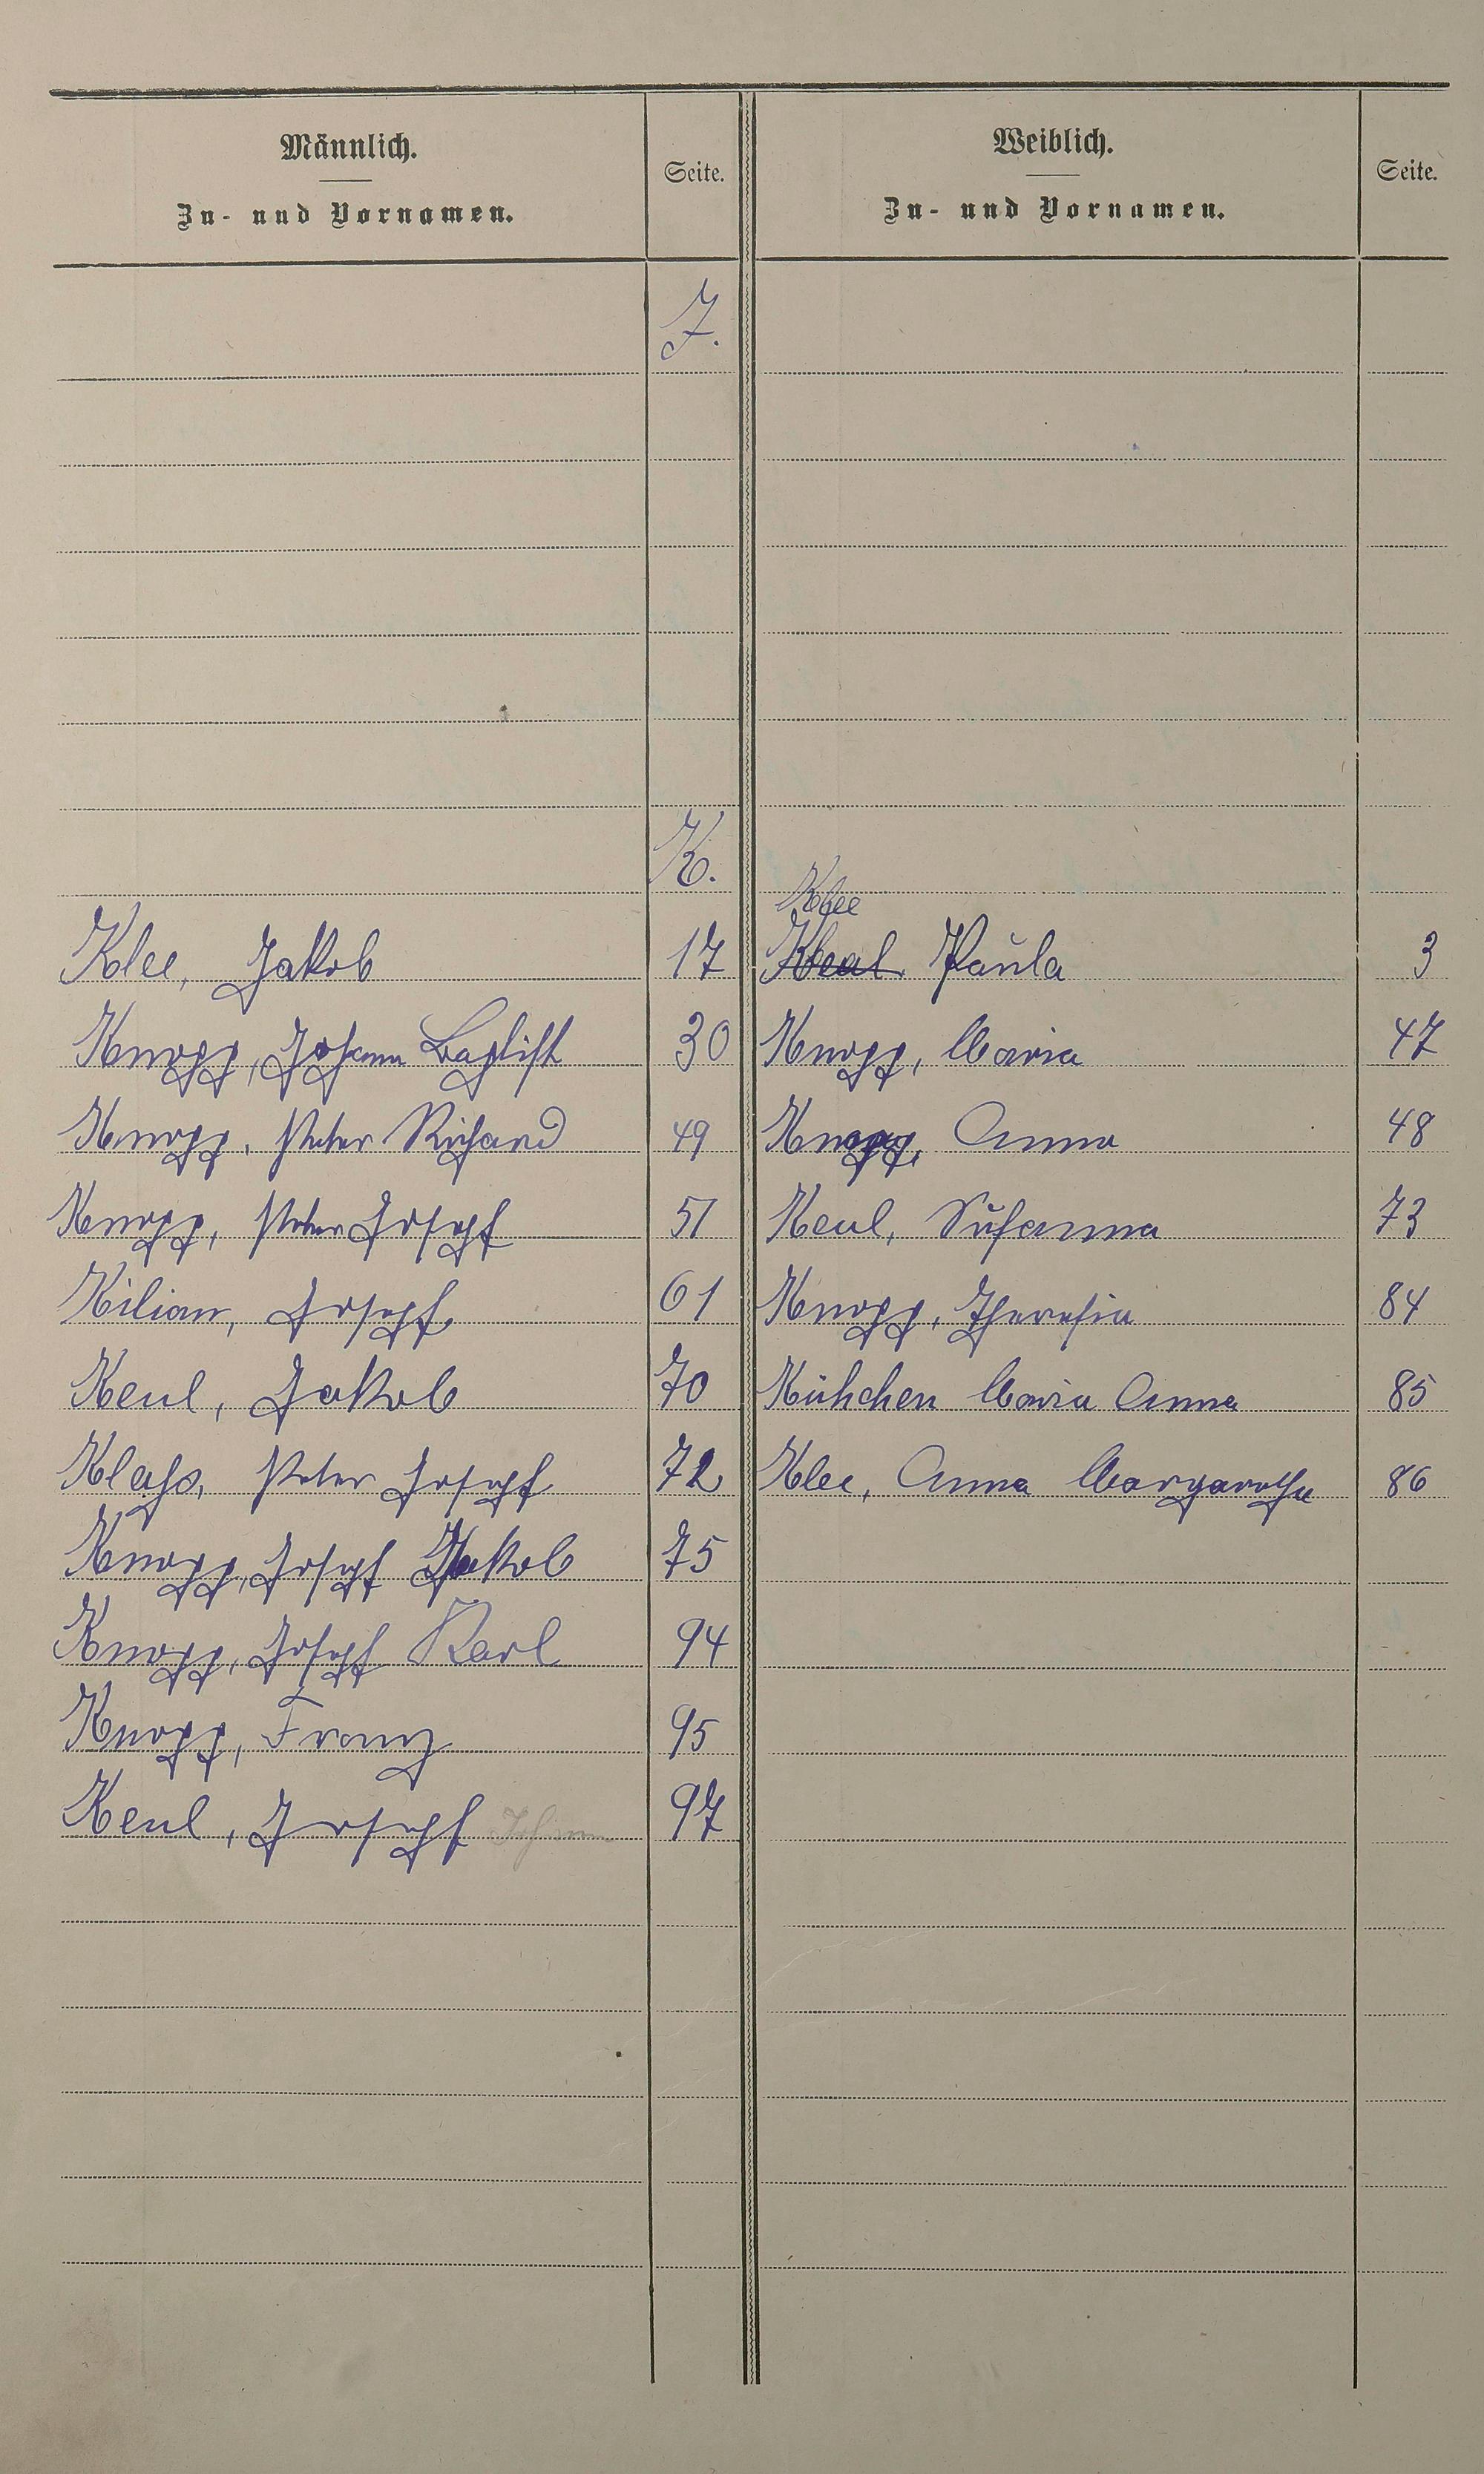 Männlich.
Zu- und Vornamen.
Seite.
Weiblich.
Zu- und Vornamen.
Seite.
J.
K.
Klee
Klee, Jakob 17 Keul, Paula 3
Knopp, Johann Baptist 30 Knopp, Maria 47
Knopp, Peter Richard 49 Knopp, Anna 48
Knopp, Peter Joseph 51 Keul, Susanna 73
Kilian, Joseph 61 Knopp, Theresia 84
Keul, Jakob 70 Kühchen Maria Anna 85
Klass, Peter Joseph 72 Klee, Anna Margarethe 86
Knopp, Joseph Jakob 75
Knopp, Joseph Karl 94
Knopp, Franz 95
Keul, Joseph Johann 97